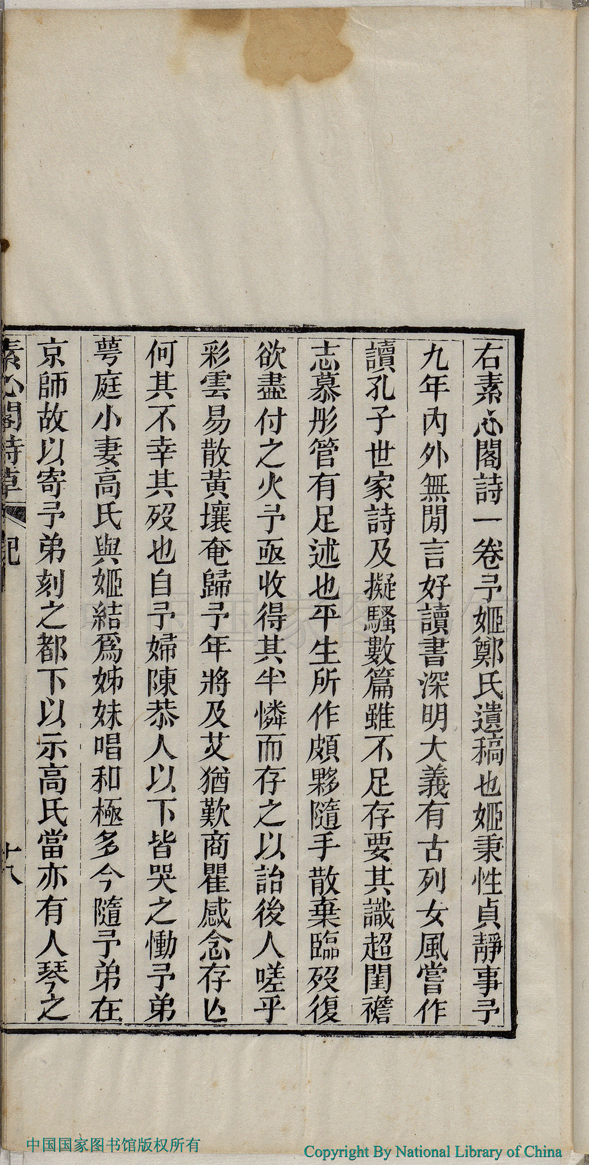 右素心閣詩一卷予姬鄭氏遺稿也姬秉性貞靜事予
九年內外無閒言好讀書深明大義有古列女風嘗作
讀孔子世家詩及擬騷數篇雖不足存要其識超閨襜
志慕彤管有足述也平生所作頗夥隨手散棄臨歿復
欲盡付之火予亟收得其半憐而存之以詒後人嗟乎
彩雲易散黃壤奄歸予年將及艾猶歎商瞿感念存亾
何其不幸其歿也自予婦陳恭人以下皆哭之慟予弟
萼庭小妻高氏與姬結爲姊妹唱和極多今隨予弟在
京師故以寄予弟刻之都下以示高氏當亦有人琴之
素心閣詩草 記 十八
中国国家图书馆版权所有
Copyright By National Library of China